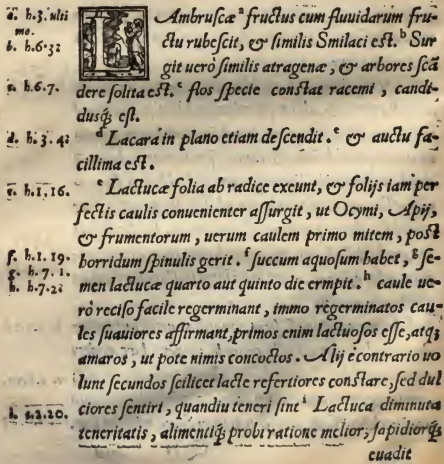 a. h.3. ulti
mo.
b. h.6.3z
c. h.6.7.
d. h.3.4z
e. h.1.16.
f. h.1.19.
g. h.7.1.
h. h.7.2z
i. s.2.20.
LAmbruscæ ᵃ fructus cum fluuidarum fru-
ctu rubescit, & similis Smilaci est. ᵇ Sur
git uerò similis atragenæ, & arbores scã
dere solita est. ᶜ flos specie constat racemi, candi-
dusq́; est.
ᵈ Lacara in plano etiam descendit. ᵉ & auctu fa-
cillima est.
ᵉ Lactucæ folia ab radice exeunt, & folijs iam per
fectis caulis conuenienter assurgit, ut Ocymi, Apij,
& frumentorum, uerum caulem primo mitem, post
horridum spinulis gerit. ᶠ succum aquosum habet, ᵍ se-
men lactucæ quarto aut quinto die ermpit. ʰ caule ue-
rò reciso facile regerminant, immo regerminatos cau-
les suauiores affirmant, primos enim lactuosos esse, atq;
amaros, ut pote nimis concoctos. Alij è contrario uo
lunt secundos scilicet lacte refertiores constare, sed dul
ciores sentiri, quandiu teneri sint ⁱ Lactuca diminuta
teneritatis, alimentiq́; probi ratione melior, sapidiorq́;
euadit